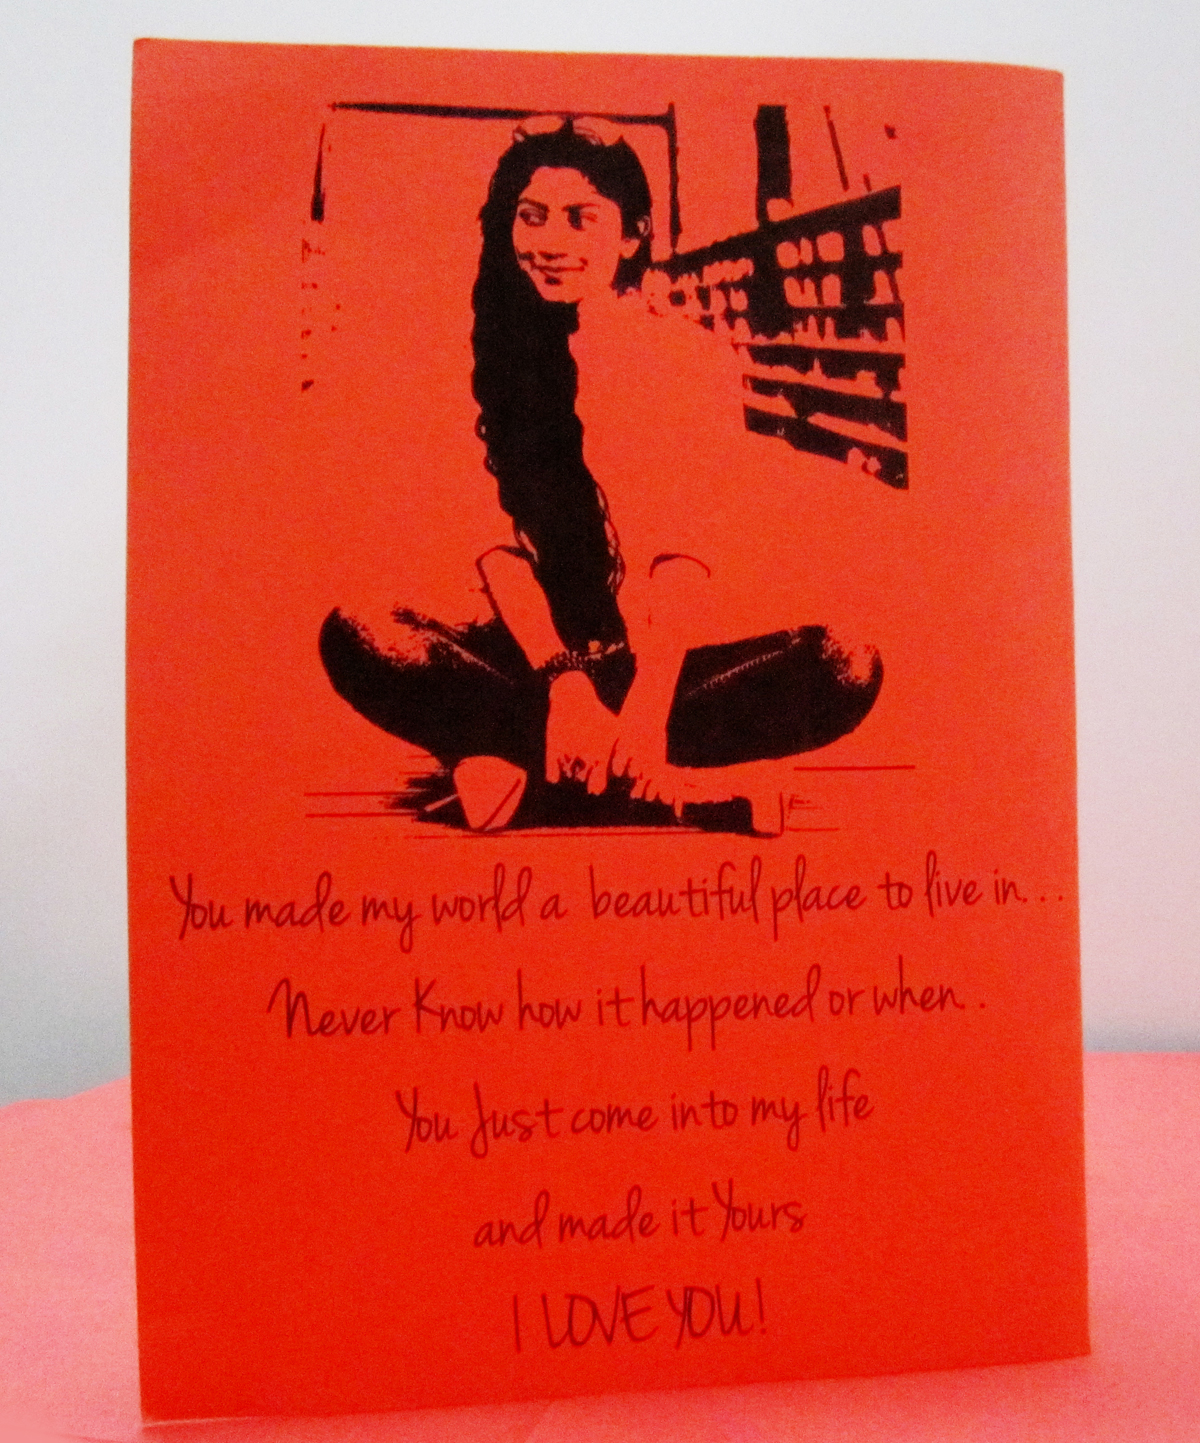 You made my world a beautiful place to live in...
Never Know how it happened or when..
You Just come into my life
and made it Yours
I LOVE YOU!